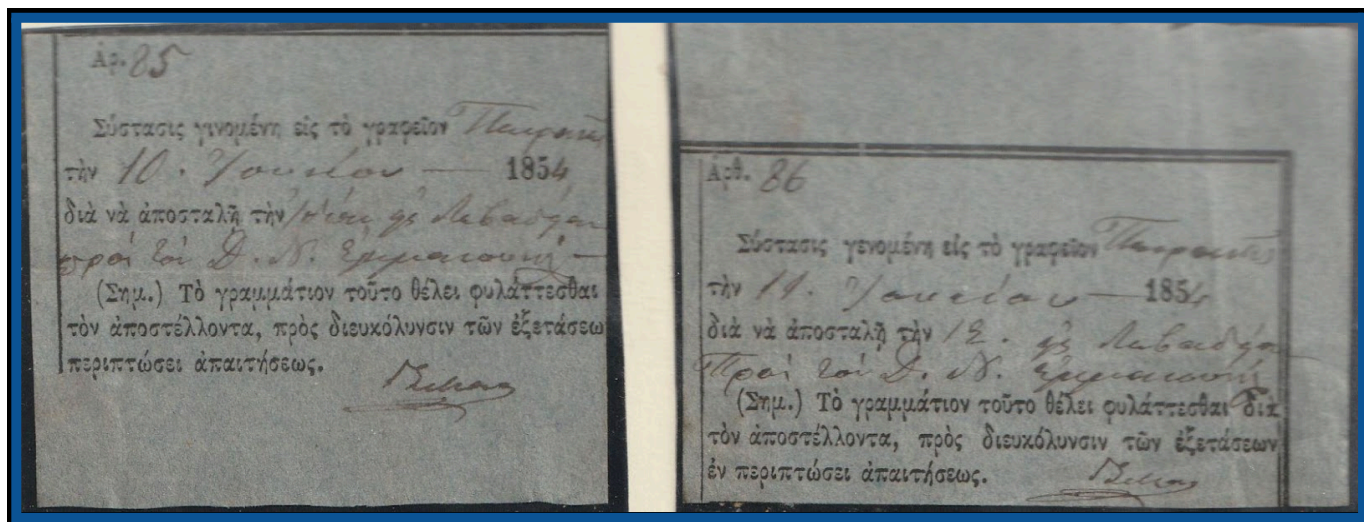 Ἀρ. 85
Σύστασις γινομένη εἰς τὸ γραφεῖον
τὴν 10. Ἰουνίου — 1854
διὰ νὰ ἀποσταλῇ τὴν
πρὸς τὸν Δ. Ν.
(Σημ.) Τὸ γραμμάτιον τοῦτο θέλει φυλάττεσθαι
τὸν ἀποστέλλοντα, πρὸς διευκόλυνσιν τῶν ἐξετάσεω
περιπτώσει ἀπαιτήσεως.
Ἀρθ. 86
Σύστασις γενομένη εἰς τὸ γραφεῖον
τὴν 11. Ἰουνίου — 1854
διὰ νὰ ἀποσταλῇ τὴν 12.
Πρὸς τὸν Δ. Ν.
(Σημ.) Τὸ γραμμάτιον τοῦτο θέλει φυλάττεσθαι διὰ
τὸν ἀποστέλλοντα, πρὸς διευκόλυνσιν τῶν ἐξετάσεων
ἐν περιπτώσει ἀπαιτήσεως.